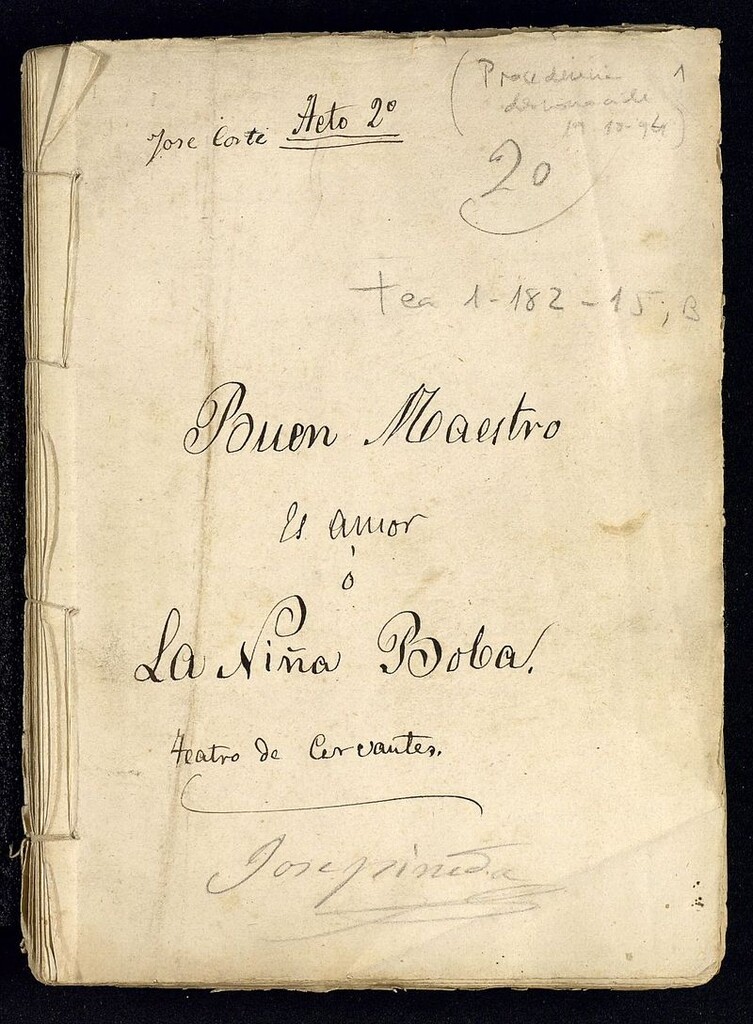 (Procedencia 1
desconocida
19-10-94)
Jose Corte Acto 2º
20
Tea 1-182-15, B
Buen Maestro
Es amor
ó
La Niña Boba.
Teatro de Cervantes.
Jose pineda